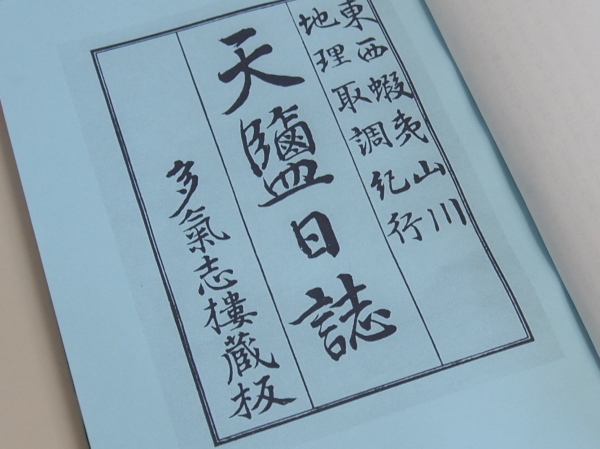 東西蝦夷山川
地理取調紀行
天鹽日誌
多氣志樓蔵板